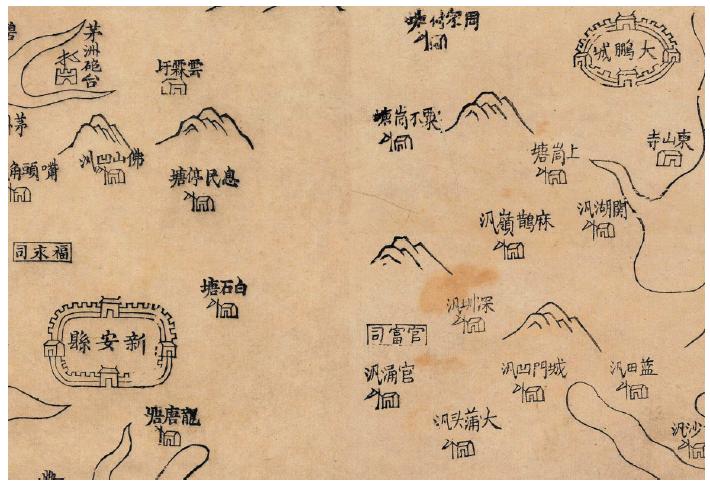 大鵬城
東山寺
上崗塘
關湖汛
麻鵲嶺汛
深圳汛
官富司
官涌汛
城門凹汛
藍田汛
大蒲头汛
沙汛
茅洲砲台
雲霖圩
佛山凹汛
息民停塘
嘴頭角
福永司
白石塘
新安縣
龍唐塘